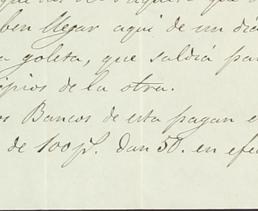 ben llegar aqui de un dia
a goleta, que saldrá par
cipios de la otra.
os Bancos de esta pagan e
de 100 p%. Dan 50. en efe